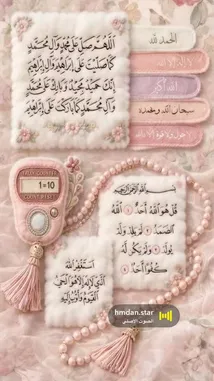 اللَّهُمَّ صَلِّ عَلَى مُحَمَّدٍ وَآلِ مُحَمَّدٍ
كَمَا صَلَّيْتَ عَلَى إِبْرَاهِيمَ وَآلِ إِبْرَاهِيمَ
إِنَّكَ حَمِيدٌ مَجِيدٌ وَبَارِكْ عَلَى مُحَمَّدٍ
وَآلِ مُحَمَّدٍ كَمَا بَارَكْتَ عَلَى إِبْرَاهِيمَ
الحمد لله
لا إله إلا الله
الله أكبر
سبحان الله وبحمده
حول ولا قوة إلا بالله
TALLY COUNTER
1=10
COUNT RESET
بسم الله الرحمن الرحيم
قُلْ هُوَ اللَّهُ أَحَدٌ ۝ اللَّهُ
الصَّمَدُ ۝ لَمْ يَلِدْ وَلَمْ
يُولَدْ ۝ وَلَمْ يَكُن لَّهُ
كُفُوًا أَحَدٌ ۝
أستغفر الله
الذي لا إله إلا هو الحي
القيوم وأتوب إليه
hmdan.star
الصوت الأصلي